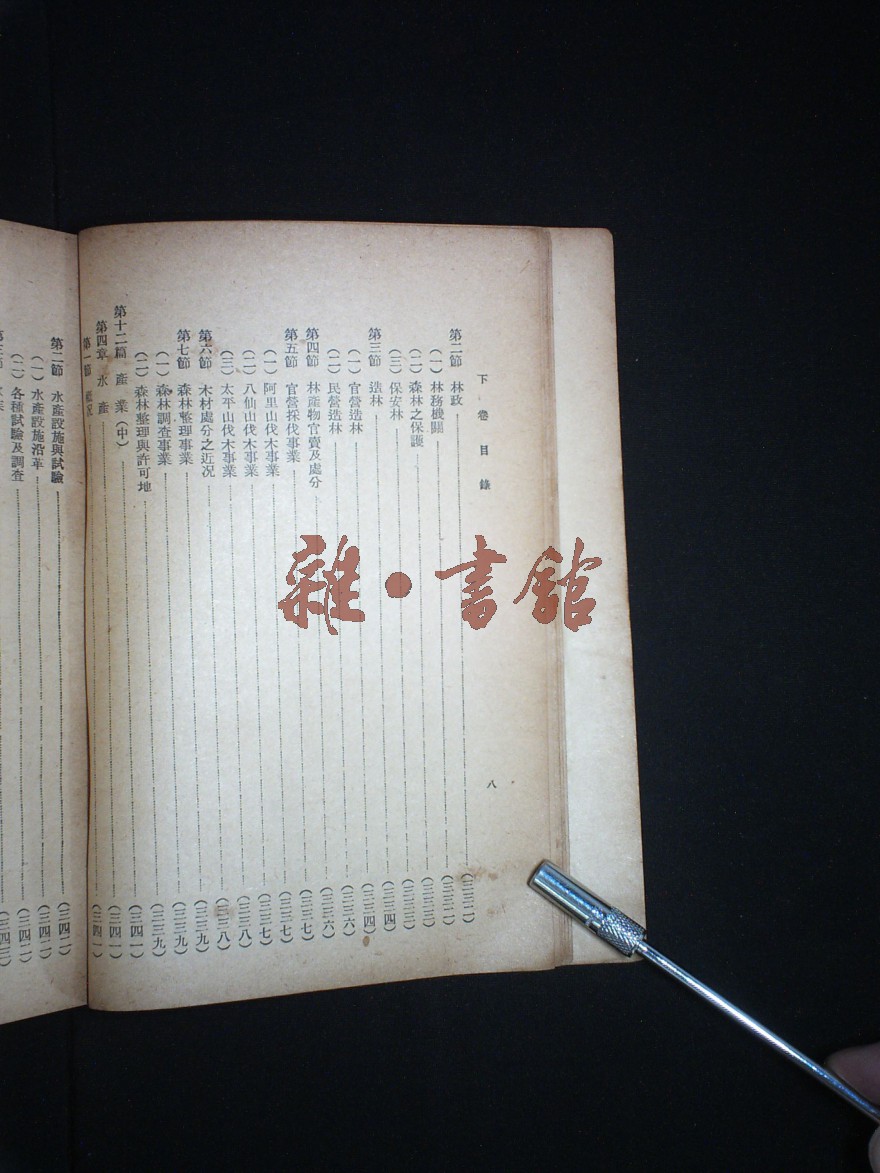 下卷目錄
八
第二節 林政 (三三二)
(一) 林務機關 (三三二)
(二) 森林之保護 (三三三)
(三) 保安林 (三三三)
第三節 造林 (三三四)
(一) 官營造林 (三三四)
(二) 民營造林 (三三六)
第四節 林產物官賣及處分 (三三六)
第五節 官營採伐事業 (三三七)
(一) 阿里山伐木事業 (三三七)
(二) 八仙山伐木事業 (三三八)
(三) 太平山伐木事業 (三三八)
第六節 木材處分之近況 (三三九)
第七節 森林整理事業 (三三九)
(一) 森林調查事業 (三三九)
(二) 森林整理與許可地 (三四一)
第十二篇 產業(中) (三四一)
第四章 水產 (三四一)
第一節 概況
第二節 水產設施與試驗 (三四二)
(一) 水產設施沿革 (三四二)
(二) 各種試驗及調查 (三四二)
(三四三)
雜·書館